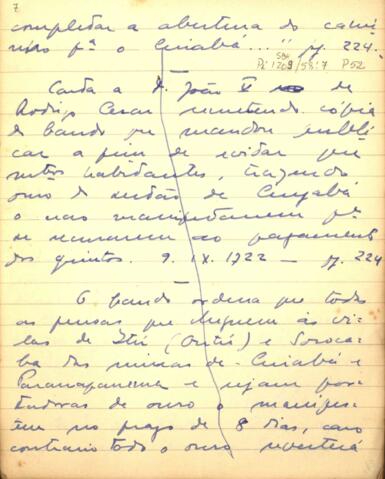 7
completar a abertura do cami-
nho pª o Cuiabá..." pg. 224.
SBH
Pi 1209/58:7 P52
Carta a D. João V de
Rodrigo Cesar remetendo cópia
do bando que mandou publi-
car a fim de evitar que
muitos habitantes, trazendo
ouro do sertão de Cuyabá
o não manifestassem pª
se ao pagamento
dos quintos. 9.IX.1722 — pg. 224
O bando ordena que todas
as pessoas que cheguem às vi-
las de Itú (Outú) e Soroca-
ba das minas de Cuiabá e
Paranapanema e sejam por-
tadoras de ouro o manifes-
tem no prazo de 8 dias, caso
contrario todo o ouro reverterá